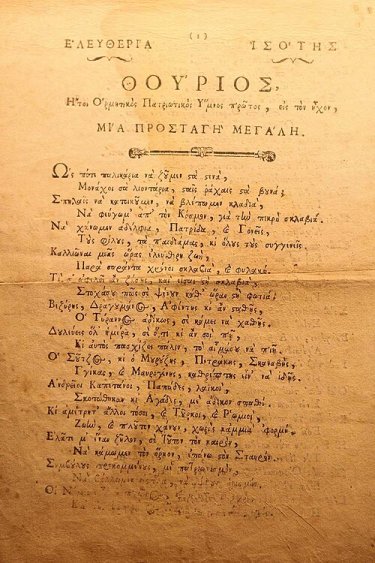 (1)
ἘΛΕΥΘΕΡΙΑ ἸΣΌΤΗΣ
ΘΟΎΡΙΟΣ,
Ἤτοι Ὁρμητικὸς Πατριωτικὸς Ὕμνος πρῶτος, εἰς τὸν ἦχον,
ΜΊΑ ΠΡΟΣΤΑΓῊ ΜΕΓΆΛΗ.
Ὡς πότε παλικάρια νὰ ζοῦμεν στὰ στενά,
Μονάχοι σὰ λεοντάρια, σταῖς ράχαις στὰ βουνά;
Σπηλιαὶς νὰ κατοικοῦμεν, νὰ βλέπωμεν κλαδιά,
Νὰ φεύγωμ' ἀπ' τὸν Κόσμον, γιὰ τὴν πικρὴ σκλαβιά.
Νὰ χάνωμεν ἀδέλφια, Πατρίδα, & Γονεῖς,
Τοὺς φίλους, τὰ παιδιά μας, κι ὅλους τοὺς συγγενεῖς.
Καλλίωναι μίας ὥρας ἐλεύθερη ζωή,
Παρὰ σαράντα χρόνοι σκλαβιά, & φυλακή.
Τί σ' ὠφελεῖ ἂν ζήσης, καὶ εἶσαι στὴ σκλαβιά,
Στοχάσου πῶς σὲ ψένουν καθ' ὥραν στὴ φωτιά.
Βεζύρης, Δραγουμάνος, Ἀφέντης κι ἂν σταθῆς,
Ὁ Τύραννος ἀδίκως, σὲ κάμει νὰ χαθῆς.
Δουλεύεις ὅλ' ἡμέρα, σὲ ὅ,τι κι ἂν σοι πῆ,
Κι αὐτὸς πασχίζει πάλιν, τὸ αἷμα σου νὰ πιῆ.
Ὁ Σούτζος, κι ὁ Μουρούζης, Πετράκης, Σκαναβής,
Γγίκας, & Μαυρογένης, καθρέπτης εἶν' νὰ ἰδῆς.
Ἀνδρεῖοι Καπιτάνοι, Παπάδες, λαϊκοί,
Σκοτώθηκαν κι Ἀγάδες, μὲ ἄδικον σπαθί.
Κι ἀμέτρητ' ἄλλοι τόσοι, & Τοῦρκοι, & Ῥωμιοί,
Ζωὴν, & πλοῦτον χάνουν, χωρὶς καμμιὰ 'φορμή.
Ἐλᾶτε μ' ἕναν ζῆλον, σὲ τοῦτον τὸν καιρόν,
Νὰ κάμωμεν τὸν ὅρκον, ἐπάνω στὸν Σταυρόν.